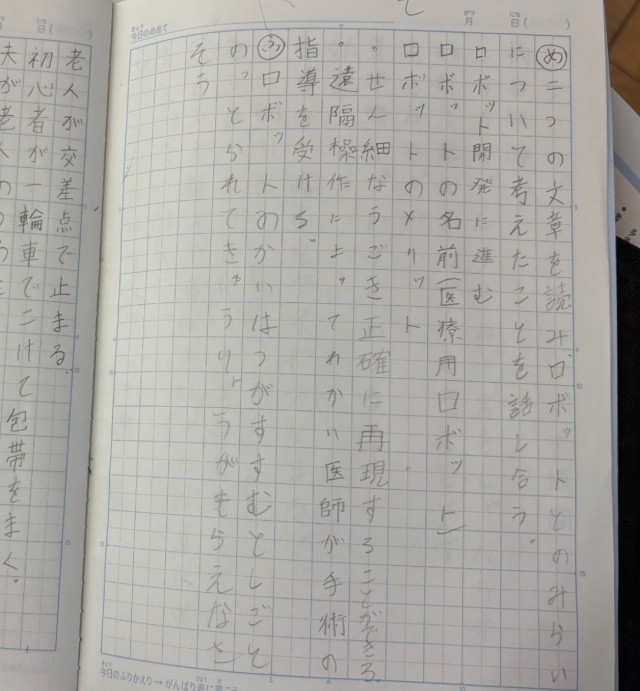 め 二つの文章を読みロボットとのみらい
について考えたことを話し合う。
ロボット開発に進む
ロボットの名前「医療用ロボット」
ロボットのメリット
・せん細なうごき正確に再現することができる。
・遠隔操作によってわかい医師が手術の
指導を受ける。
ふ ロボットのかいはつがすすむとしごと
の、とられてきゅうりょうがもらえなさ
そう
老人が交差点で止まる
初心者が一輪車でこけて包帯をまく。
今日のめあて
月 日( )
日( )
今日のふりかえり→がんばり